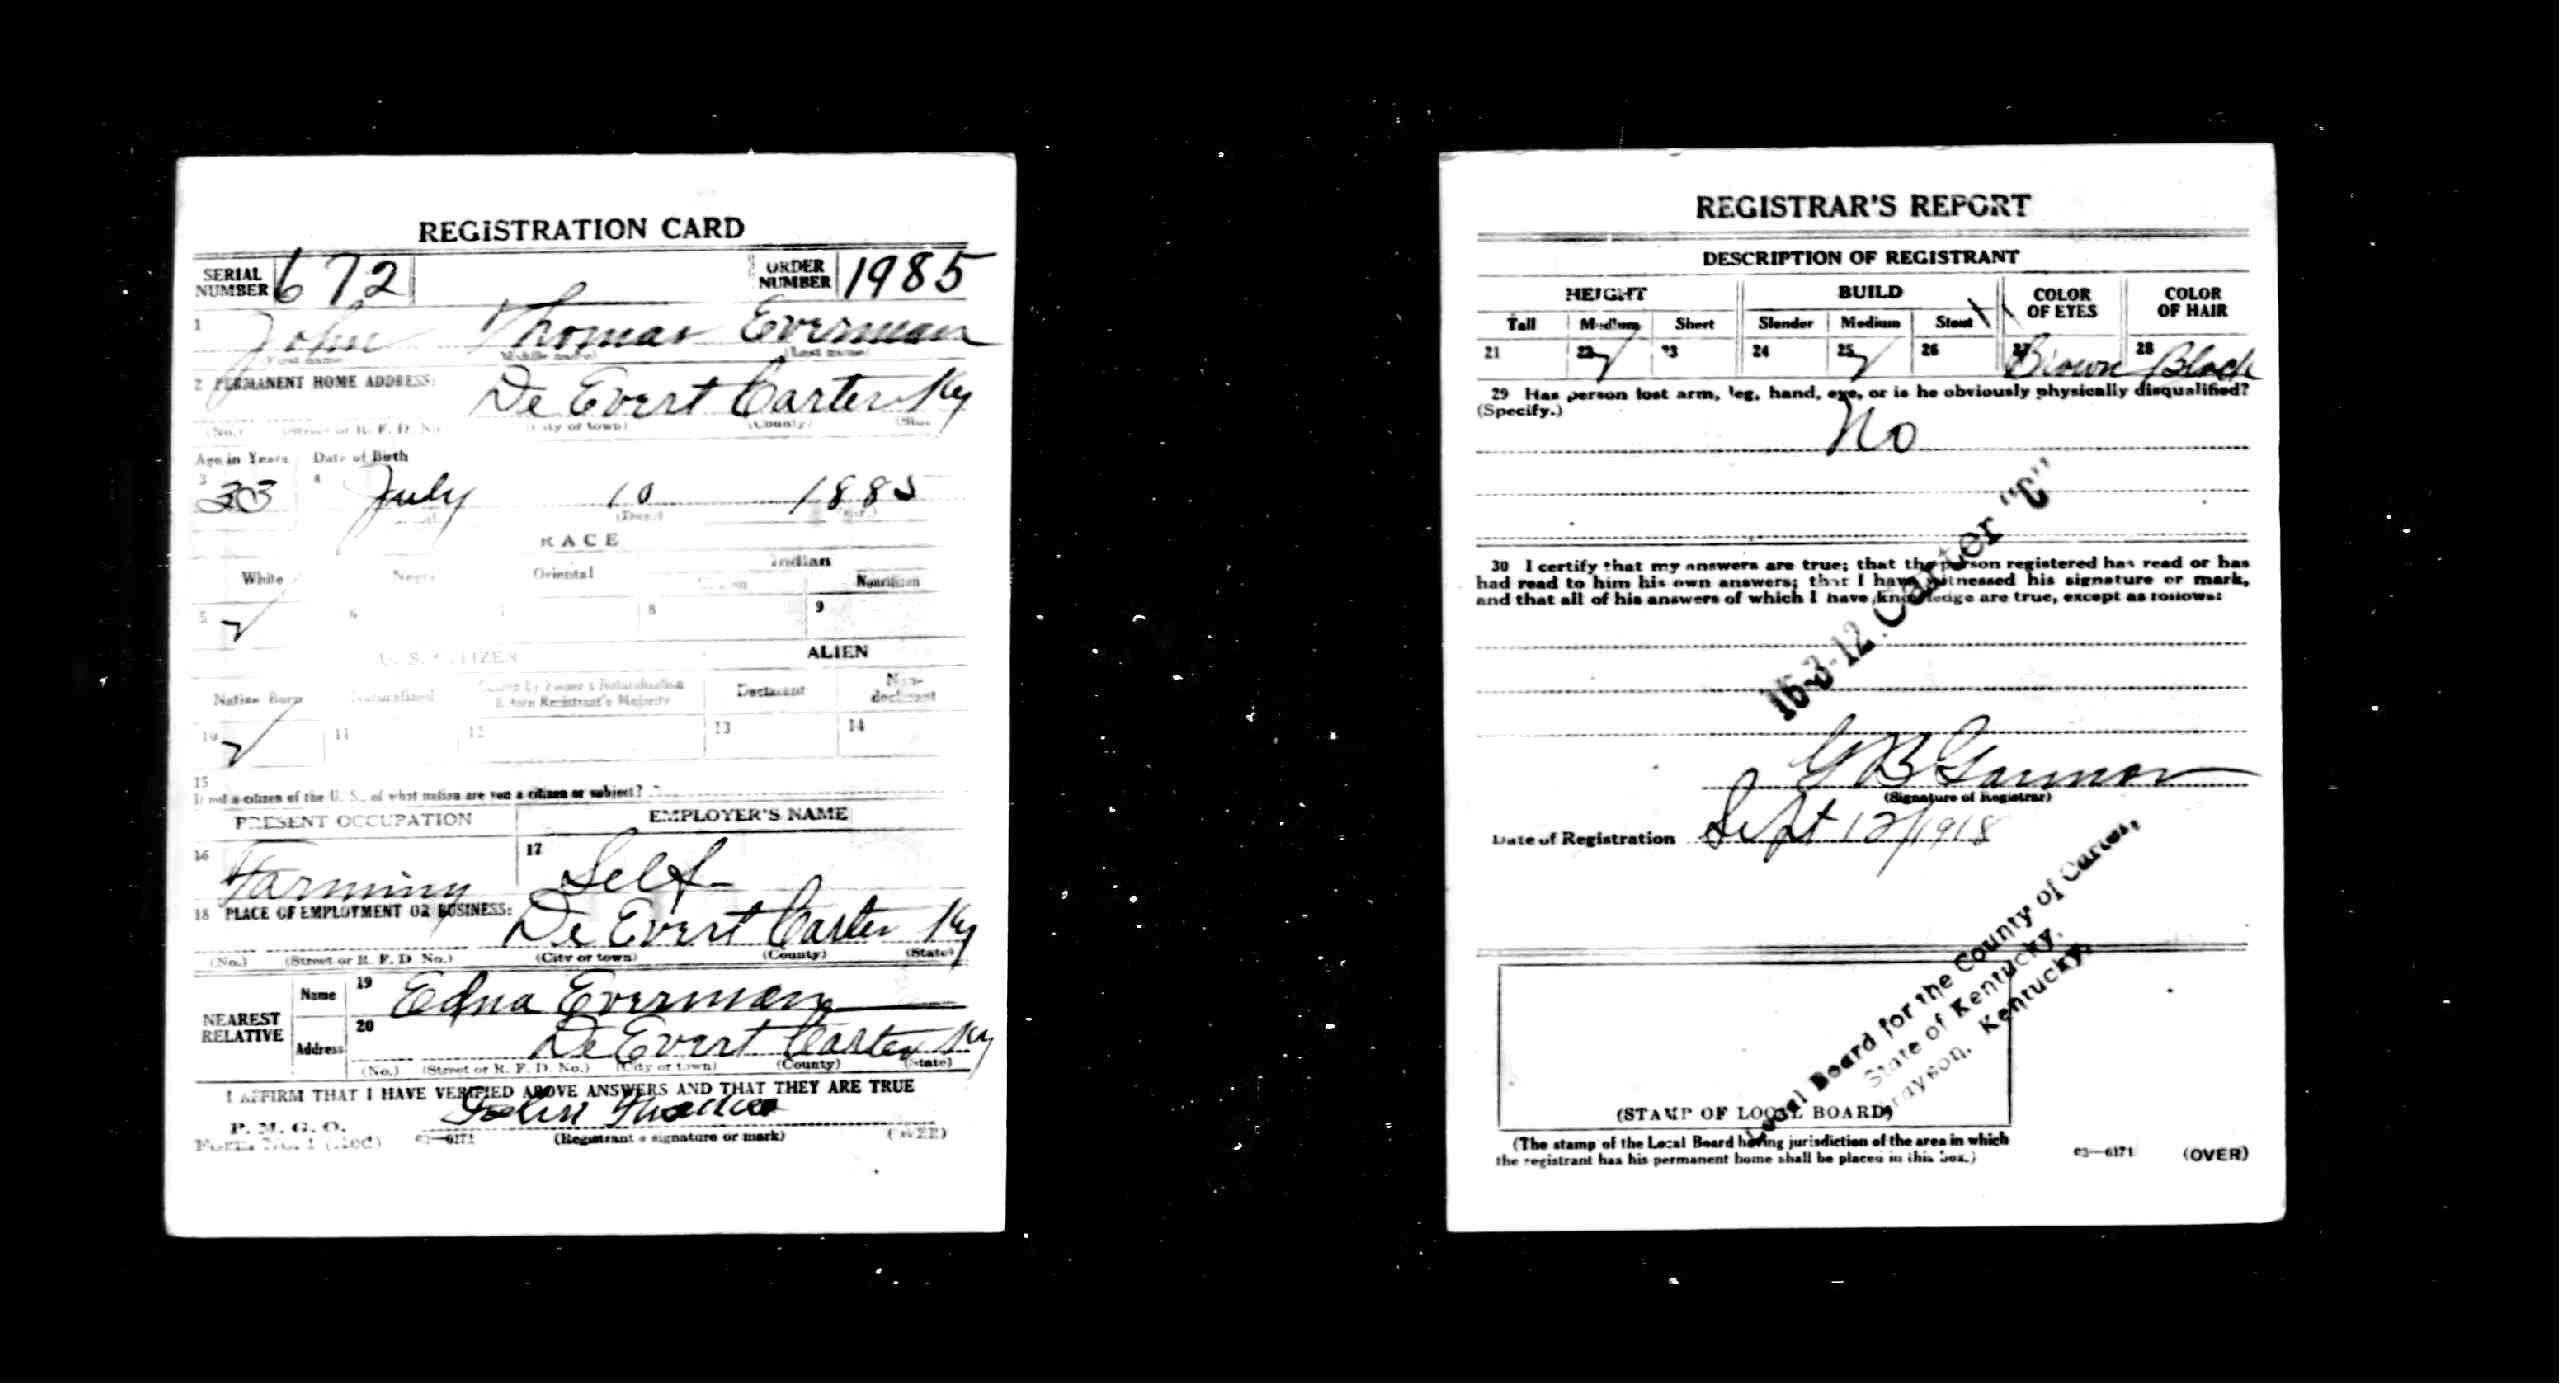 REGISTRATION CARD
SERIAL NUMBER 672 ORDER NUMBER 1985
1 John Thomas Everman
(First name) (Middle name) (Last name)
2 PERMANENT HOME ADDRESS:
De Evert Carter Ky
(No.) (Street or R. F. D. No.) (City or town) (County) (State)
Age in Years Date of Birth
3 33 4 July 10 1885
(Day.) (Year.)
RACE
White Negro Oriental Indian
Citizen Noncitizen
5 ✓ 6 7 8 9
U. S. CITIZEN ALIEN
Native Born Naturalized Citizen by Father's Naturalization Before Registrant's Majority Declarant Non-declarant
10 ✓ 11 12 13 14
15
If not a citizen of the U. S., of what nation are you a citizen or subject?
PRESENT OCCUPATION EMPLOYER'S NAME
16 Farming 17 Self
18 PLACE OF EMPLOYMENT OR BUSINESS:
De Evert Carter Ky
(No.) (Street or R. F. D. No.) (City or town) (County) (State)
NEAREST RELATIVE
Name 19 Edna Everman
Address 20 De Evert Carter Ky
(No.) (Street or R. F. D. No.) (City or town) (County) (State)
I AFFIRM THAT I HAVE VERIFIED ABOVE ANSWERS AND THAT THEY ARE TRUE
P. M. G. O.
Form No. 1 (Red) 03—6171 (Registrant's signature or mark) (OVER)
John
REGISTRAR'S REPORT
DESCRIPTION OF REGISTRANT
HEIGHT BUILD COLOR OF EYES COLOR OF HAIR
Tall Medium Short Slender Medium Stout
21 22 ✓ 23 24 25 ✓ 26 27 Brown 28 Black
29 Has person lost arm, leg, hand, eye, or is he obviously physically disqualified?
(Specify.)
No
30 I certify that my answers are true; that the person registered has read or has
had read to him his own answers; that I have witnessed his signature or mark,
and that all of his answers of which I have knowledge are true, except as follows:
16-3-12. Carter "C"
G B
(Signature of Registrar)
Date of Registration Sept 12/1918
Local Board for the County of Carter,
State of Kentucky,
Grayson, Kentucky.
(STAMP OF LOCAL BOARD)
(The stamp of the Local Board having jurisdiction of the area in which
the registrant has his permanent home shall be placed in this box.)
03—6171 (OVER)